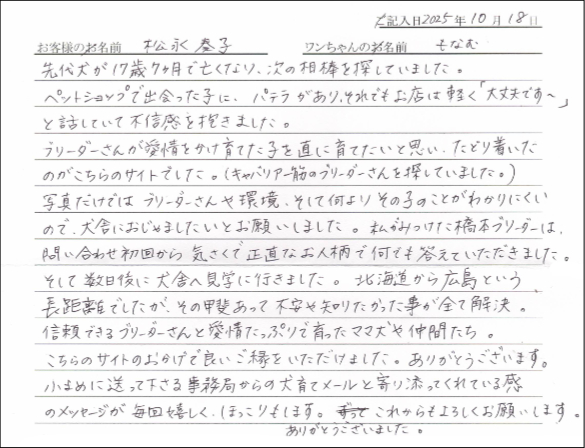 ご記入日2025年10月18日
お客様のお名前 松永泰子 ワンちゃんのお名前 もなむ
先代犬が17歳7ヶ月で亡くなり、次の相棒を探していました。
ペットショップで出会った子に、パテラがあり、それでもお店は軽く「大丈夫です〜」
と話していて不信感を抱きました。
ブリーダーさんが愛情をかけ育てた子を直に育てたいと思い、たどり着いた
のがこちらのサイトでした。(キャバリア一筋のブリーダーさんを探していました。)
写真だけではブリーダーさんや環境、そして何よりその子のことがわかりにくい
ので、犬舎におじゃましたいとお願いしました。私がみつけた橋本ブリーダーは、
問い合わせ初回から気さくで正直なお人柄で何でも答えていただきました。
そして数日後に犬舎へ見学に行きました。北海道から広島という
長距離でしたが、その甲斐あって不安や知りたかった事が全て解決。
信頼できるブリーダーさんと愛情たっぷりで育ったママ犬や仲間たち。
こちらのサイトのおかげで良いご縁をいただけました。ありがとうございます。
小まめに送って下さる事務局からの犬育てメールと寄り添ってくれている感
のメッセージが毎回嬉しく、ほっこりもします。これからもよろしくお願いします。
ありがとうございました。